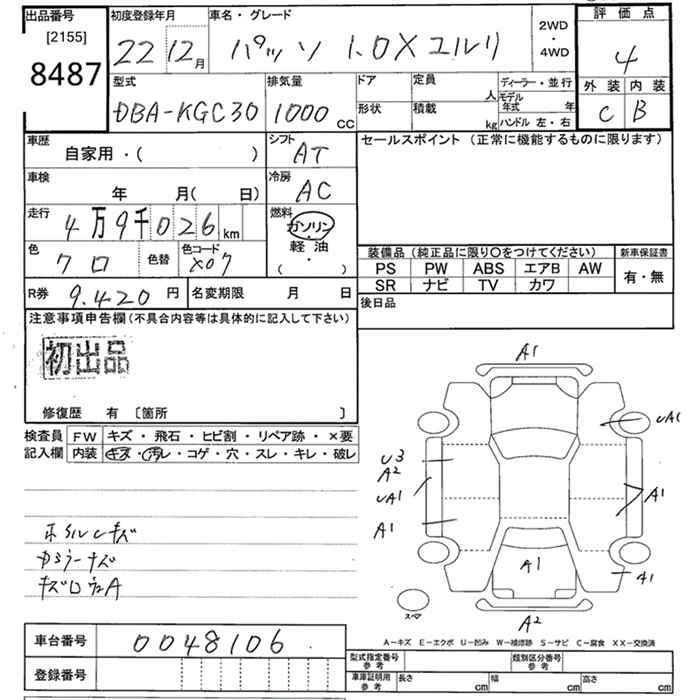 出品番号 初度登録年月 車名・グレード 2WD・4WD 評価点
[2155]
8487 22 12月 パッソ 1.0X ユルリ 4
型式 排気量 ドア 定員 人 ディーラー・並行 外装 内装
DBA-KGC30 1000cc 形状 積載 kg モデル年式 年 C B
ハンドル 左・右
車歴 シフト セールスポイント (正常に機能するものに限ります)
自家用・( ) AT
車検 冷房
年 月( 日) AC
走行 燃料
4万9千026km ガソリン・軽油・( )
色 色替 色コード
クロ X07
装備品 (純正品に限り〇をつけてください) 新車保証書
PS PW ABS エアB AW 有・無
SR ナビ TV カワ
R券 9.420円 名変期限 月 日 後日品
注意事項申告欄(不具合内容等は具体的に記入して下さい)
初出品
修復歴 有 〔箇所 〕
検査員 FW キズ・飛石・ヒビ割・リペア跡・×要
記入欄 内装 キズ・汚レ・コゲ・穴・スレ・キレ・破レ
ホイルCキズ
キズ
A1
UA1
U3
A2
UA1
A1
A1
A1
A1
A2
スマ
A-キズ E-エクボ U-凹み W-補修跡 S-サビ C-腐食 XX-交換済
車台番号 0048106
型式指定番号 参考 類別区分番号 参考
登録番号
車庫証明用 参考 長さ cm 幅 cm 高さ cm